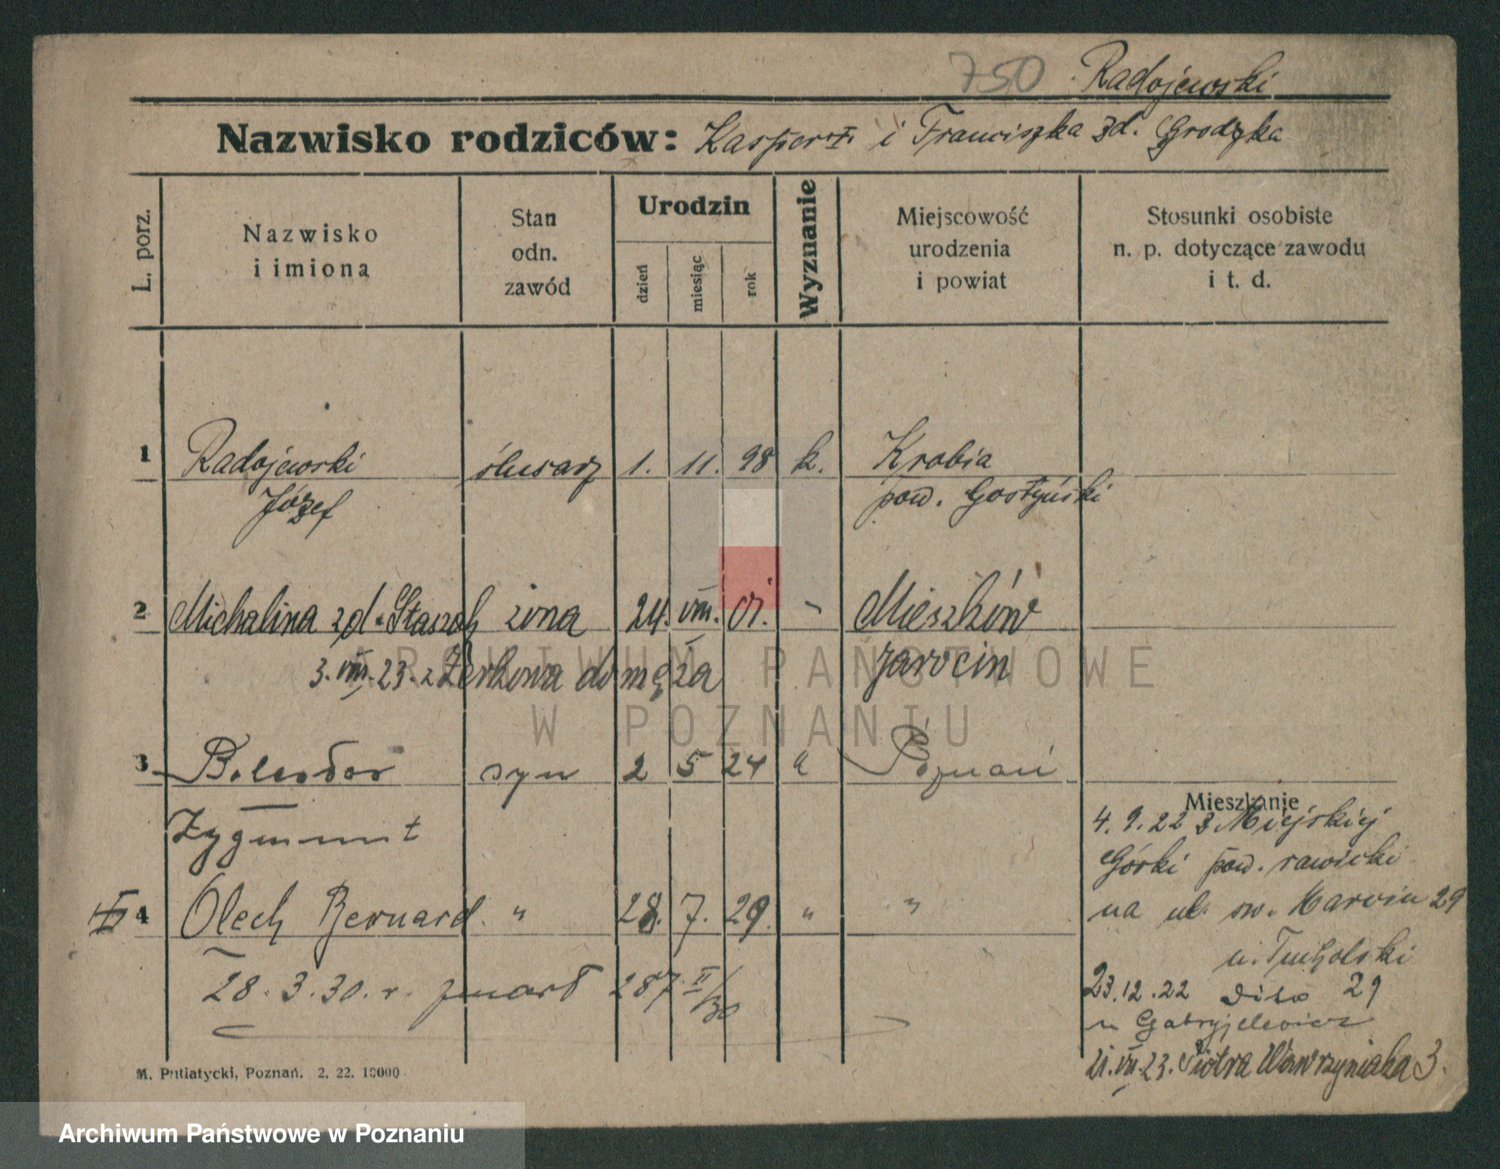 750 Radojewski
Nazwisko rodziców: Kasper i Franciszka zd. Grodzka
L. porz.
Nazwisko i imiona
Stan odn. zawód
Urodzin
dzień miesiąc rok
Wyznanie
Miejscowość urodzenia i powiat
Stosunki osobiste n. p. dotyczące zawodu i t. d.
1 Radojewski ślusarz 1. 11. 98 k. Krobia
Józef pow. Gostyński
2 Michalina zd. Staszak żona 24. VIII. 01. Mieszków
3. VIII. 23. z Żerkowa do męża Jarocin
3 Bolesław syn 2 5 24 k Poznań
Zygmunt
4 Olech Bernard " 28. 7. 29. " "
28. 3. 30. r. zmarł 287 II/30
Mieszkanie
4. 9. 22 z Miejskiej
Górki pow. rawicki
na ul. św. Marcin 29
u. Tucholski
23. 12. 22 dito 29
u Gabryelewicz
21. VII. 23. Piotra Wawrzyniaka 3.
M. Putiatycki, Poznań. 2. 22. 10000
ARCHIWUM PAŃSTWOWE
W POZNANIU
Archiwum Państwowe w Poznaniu